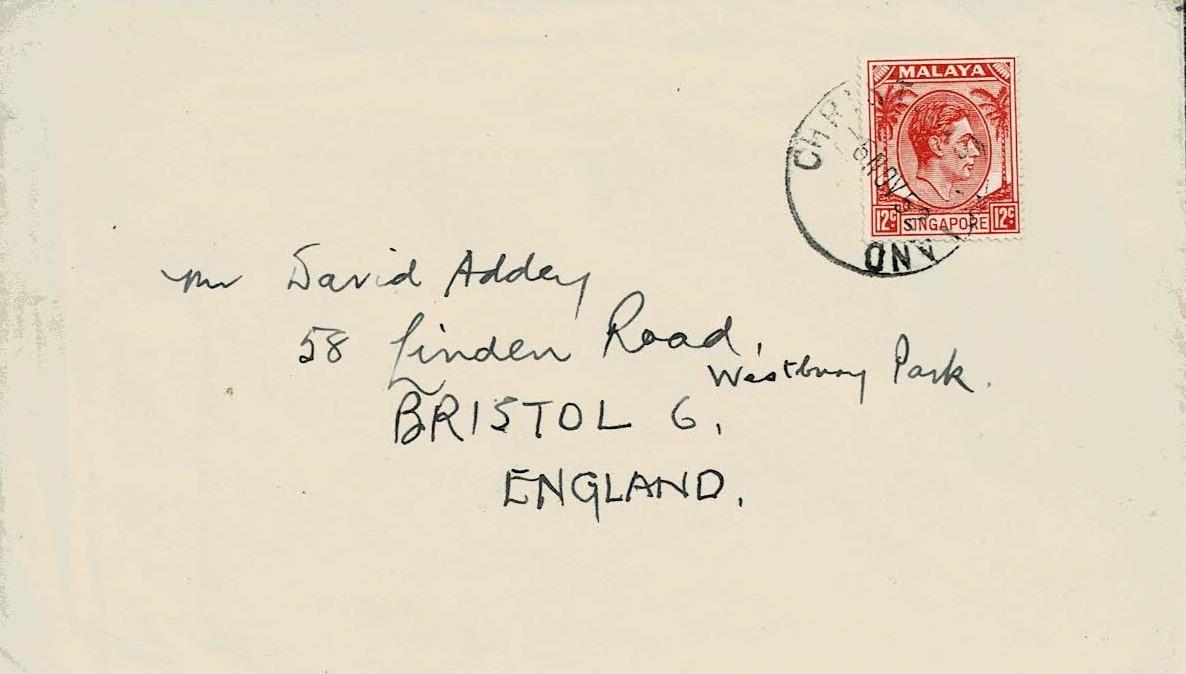 MALAYA
12c SINGAPORE 12c
CHRIST AND
NOV
Mr David Addey
58 Linden Road,
Westbury Park.
BRISTOL 6,
ENGLAND.